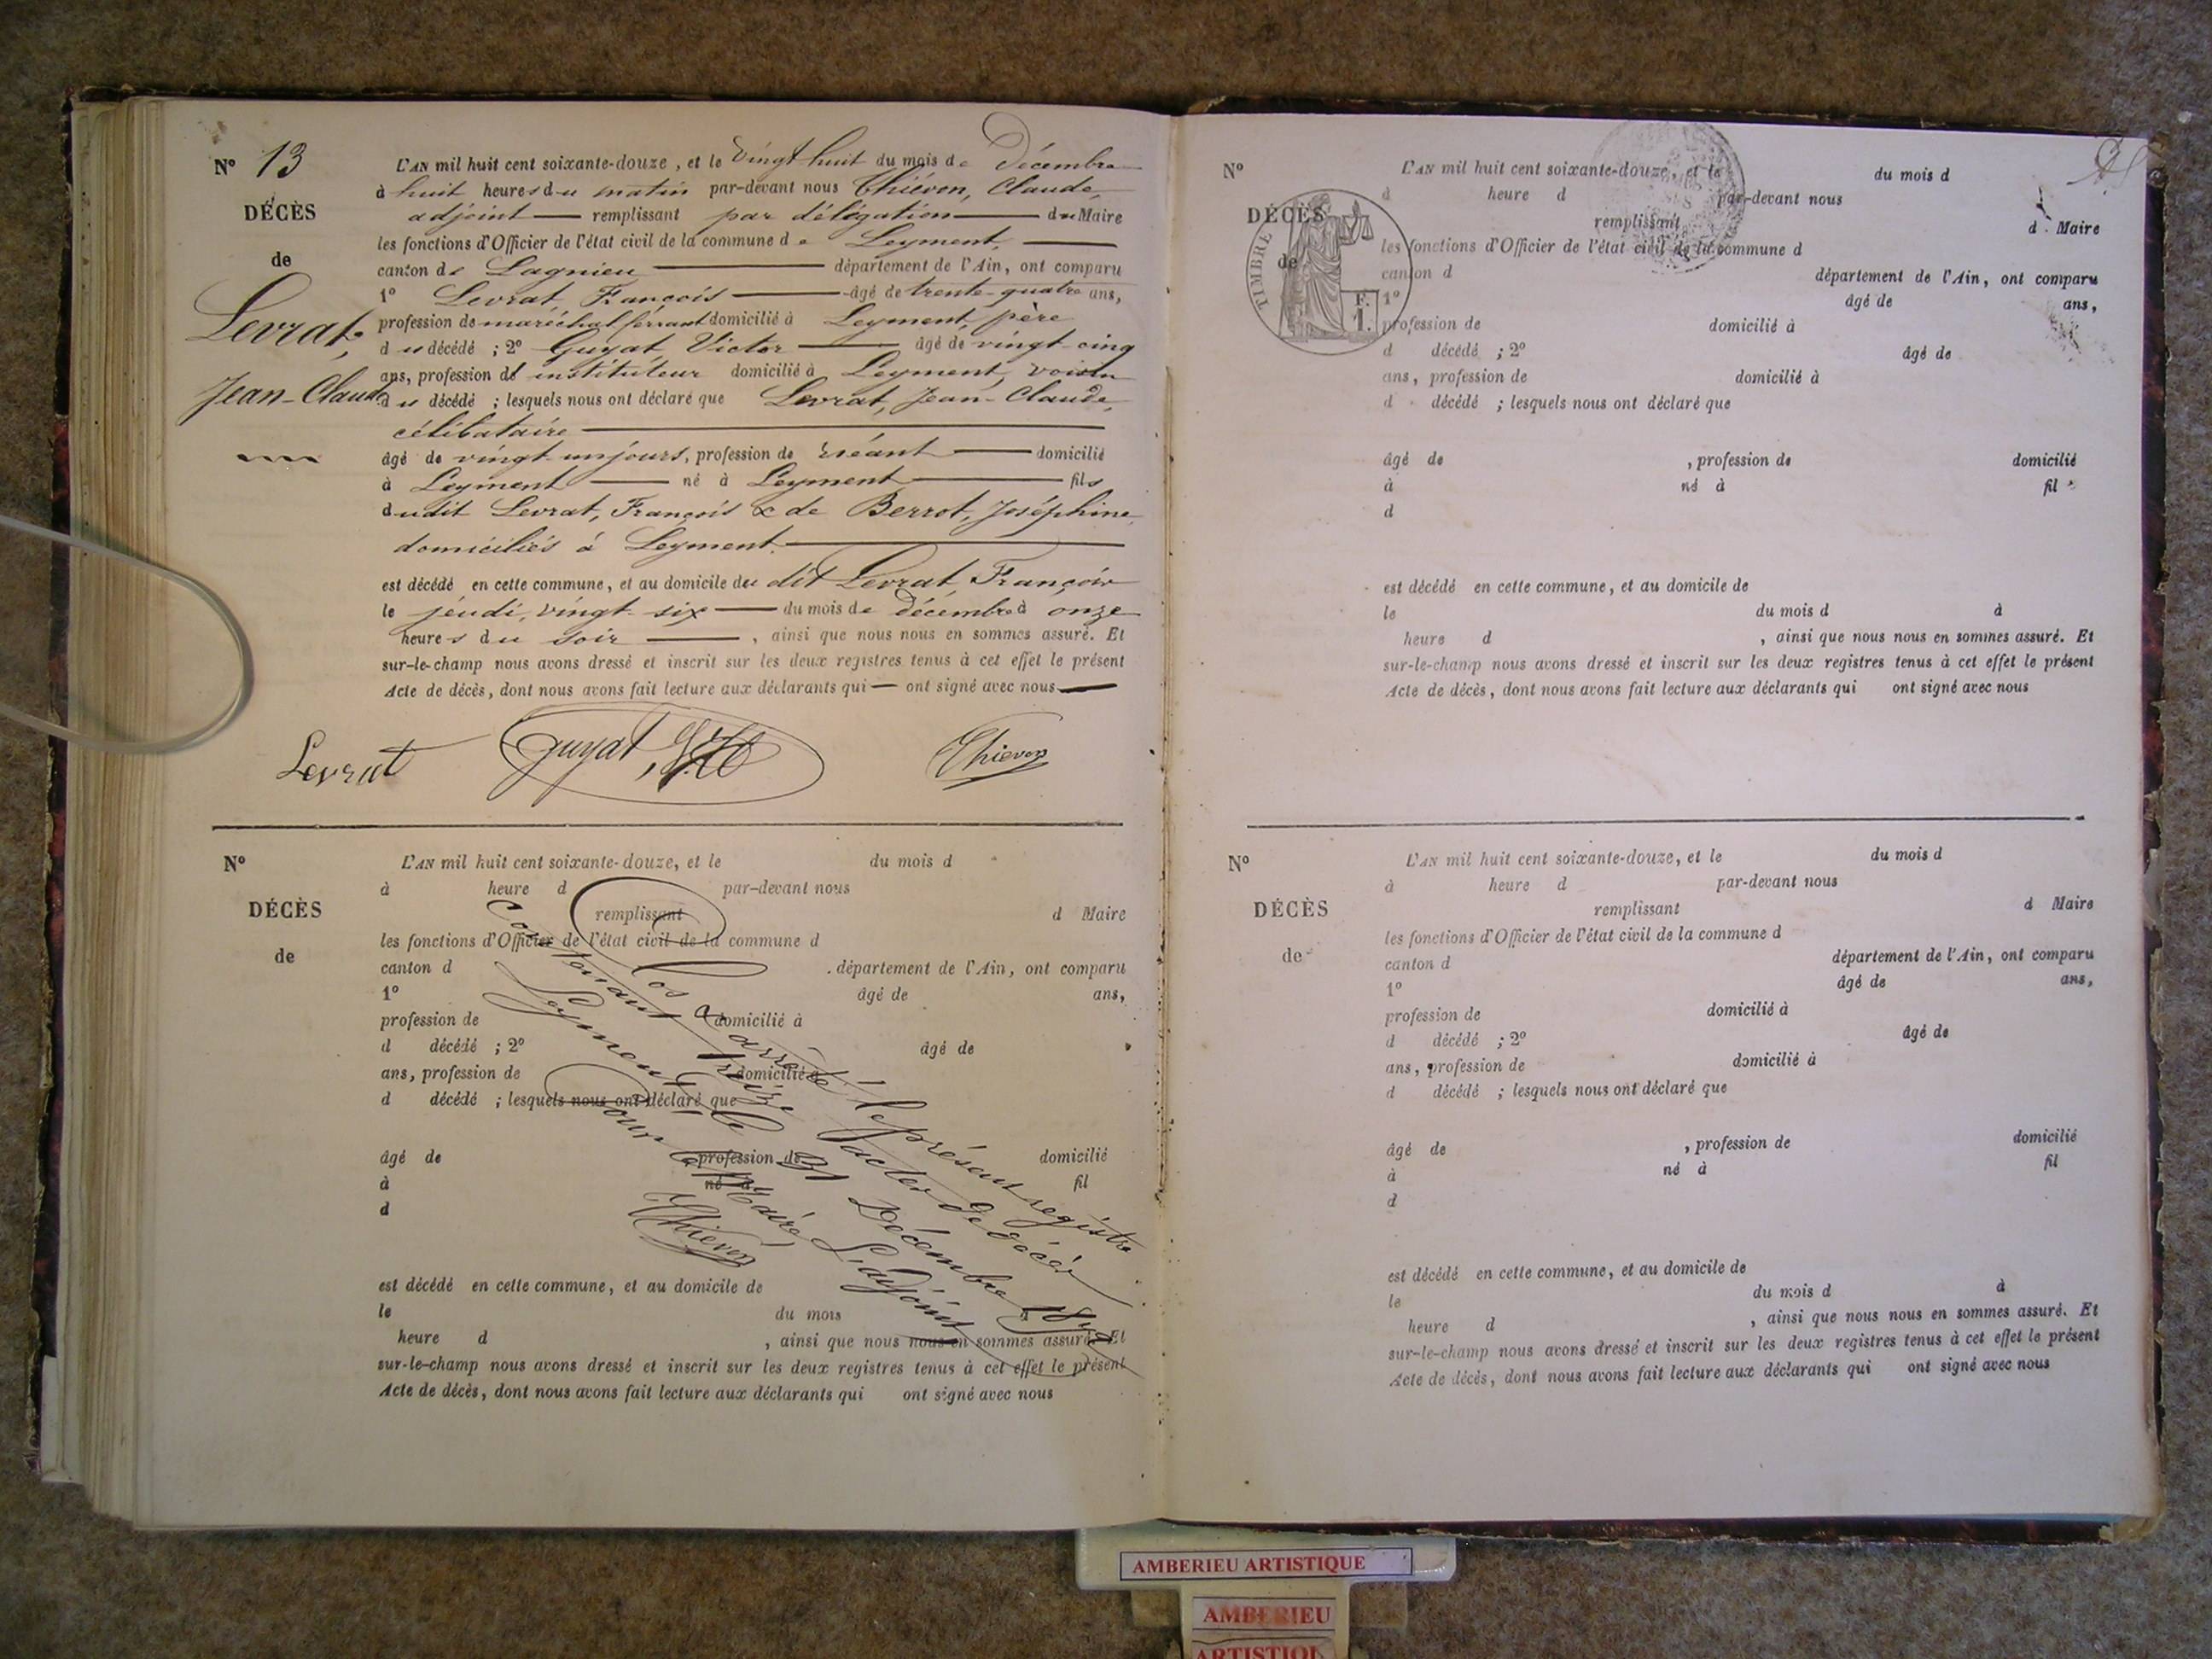 N° 13
DÉCÈS
de
Levrat,
Jean-Claude
L'AN mil huit cent soixante-douze, et le vingt huit du mois de Décembre
à huit heures du matin par-devant nous Thiévon, Claude,
adjoint remplissant par délégation du Maire
les fonctions d'Officier de l'état civil de la commune de Leyment,
canton de Lagnieu département de l'Ain, ont comparu
1° Levrat, François âgé de trente-quatre ans,
profession de maréchal ferrant domicilié à Leyment, père
du décédé ; 2° Guyat, Victor âgé de vingt-cinq
ans, profession d' instituteur domicilié à Leyment, voisin
du décédé ; lesquels nous ont déclaré que Levrat, Jean-Claude,
célibataire
âgé de vingt-un jours, profession de néant domicilié
à Leyment né à Leyment fils
dudit Levrat, François & de Berrot, Joséphine,
domiciliés à Leyment.
est décédé en cette commune, et au domicile du dit Levrat, François
le jeudi, vingt-six du mois de décembre à onze
heures du soir , ainsi que nous nous en sommes assuré. Et
sur-le-champ nous avons dressé et inscrit sur les deux registres tenus à cet effet le présent
Acte de décès, dont nous avons fait lecture aux déclarants qui ont signé avec nous
Levrat Guyat, Thievon
N°
DÉCÈS
de
L'AN mil huit cent soixante-douze, et le du mois d
à heure d par-devant nous
remplissant d Maire
les fonctions d'Officier de l'état civil de la commune d
canton d département de l'Ain, ont comparu
1° âgé de ans,
profession de domicilié à
d décédé ; 2° âgé de
ans, profession de domicilié à
d décédé ; lesquels nous ont déclaré que
âgé de profession de domicilié
à né à fil
d
est décédé en cette commune, et au domicile de
le du mois à
heure d , ainsi que nous nous en sommes assuré. Et
sur-le-champ nous avons dressé et inscrit sur les deux registres tenus à cet effet le présent
Acte de décès, dont nous avons fait lecture aux déclarants qui ont signé avec nous
Clos & arrêté le présent registre
contenant treize actes de décès
Leyment, le 31 Décembre 1872
Pour le Maire, L'adjoint,
Thievon
N°
DÉCÈS
de
TIMBRE
F.
1.
L'AN mil huit cent soixante-douze, et le du mois d
à heure d par-devant nous
remplissant d Maire
les fonctions d'Officier de l'état civil de la commune d
canton d département de l'Ain, ont comparu
1° âgé de ans,
profession de domicilié à
d décédé ; 2° âgé de
ans, profession de domicilié à
d décédé ; lesquels nous ont déclaré que
âgé de , profession de domicilié
à né à fil
d
est décédé en cette commune, et au domicile de
le du mois d à
heure d , ainsi que nous nous en sommes assuré. Et
sur-le-champ nous avons dressé et inscrit sur les deux registres tenus à cet effet le présent
Acte de décès, dont nous avons fait lecture aux déclarants qui ont signé avec nous
N°
DÉCÈS
de
L'AN mil huit cent soixante-douze, et le du mois d
à heure d par-devant nous
remplissant d Maire
les fonctions d'Officier de l'état civil de la commune d
canton d département de l'Ain, ont comparu
1° âgé de ans,
profession de domicilié à
d décédé ; 2° âgé de
ans, profession de domicilié à
d décédé ; lesquels nous ont déclaré que
âgé de , profession de domicilié
à né à fil
d
est décédé en cette commune, et au domicile de
le du mois d à
heure d , ainsi que nous nous en sommes assuré. Et
sur-le-champ nous avons dressé et inscrit sur les deux registres tenus à cet effet le présent
Acte de décès, dont nous avons fait lecture aux déclarants qui ont signé avec nous
AMBERIEU ARTISTIQUE
AMBERIEU